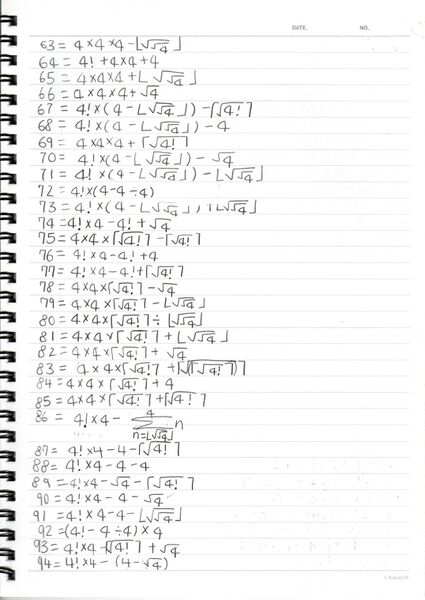 DATE. NO.
63 = 4×4×4-⌊√√4⌋
64 = 4!+4×4+4
65 = 4×4×4+⌊√√4⌋
66 = 4×4×4+√4
67 = 4!×(4-⌊√√4⌋)-⌈√4!⌉
68 = 4!×(4-⌊√√4⌋)-4
69 = 4×4×4+⌈√4!⌉
70 = 4!×(4-⌊√√4⌋)-√4
71 = 4!×(4-⌊√√4⌋)-⌊√√4⌋
72 = 4!×(4-4÷4)
73 = 4!×(4-⌊√√4⌋)+⌊√√4⌋
74 = 4!×4-4!+√4
75 = 4×4×⌈√4!⌉-⌈√4!⌉
76 = 4!×4-4!+4
77 = 4!×4-4!+⌈√4!⌉
78 = 4×4×⌈√4!⌉-√4
79 = 4×4×⌈√4!⌉-⌊√√4⌋
80 = 4×4×⌈√4!⌉÷⌊√√4⌋
81 = 4×4×⌈√4!⌉+⌊√√4⌋
82 = 4×4×⌈√4!⌉+√4
83 = 4×4×⌈√4!⌉+⌈√⌈√4!⌉⌉
84 = 4×4×⌈√4!⌉+4
85 = 4×4×⌈√4!⌉+⌈√4!⌉
86 = 4!×4-∑n
4
n=⌊√√4⌋
87 = 4!×4-4-⌈√4!⌉
88 = 4!×4-4-4
89 = 4!×4-√4-⌈√4!⌉
90 = 4!×4-4-√4
91 = 4!×4-4-⌊√√4⌋
92 = (4!-4÷4)×4
93 = 4!×4-⌈√4!⌉+√4
94 = 4!×4-(4-√4)